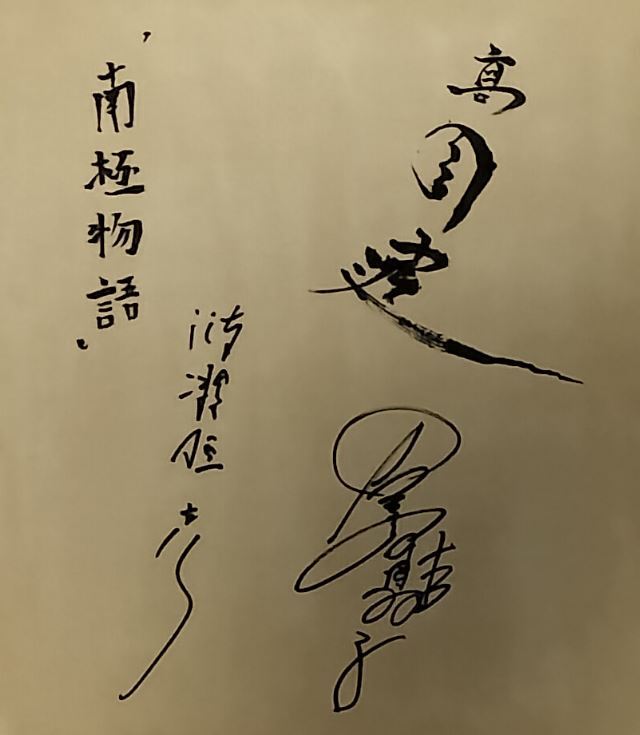 高倉健
渡瀬恒彦
'南極物語'